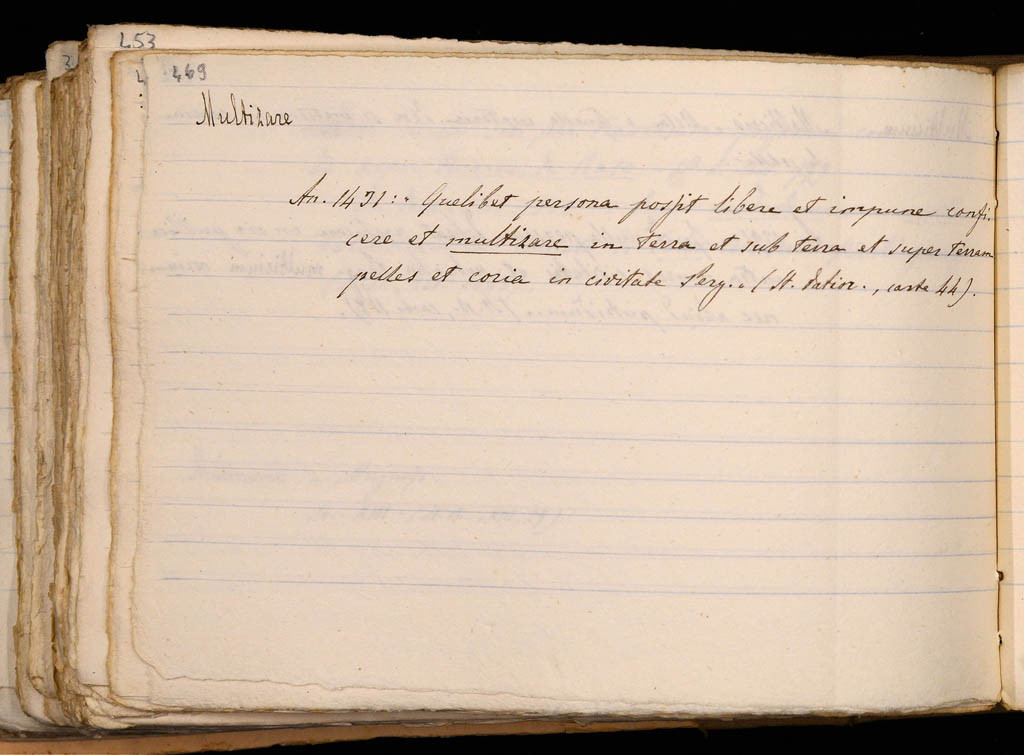 453
469
Multizare
An. 1431:. Quelibet persona possit libere et impune confi-
cere et multizare in terra et sub terra et super terram
pelles et coria in civitate Perg.. (St. Datior., carte 44).